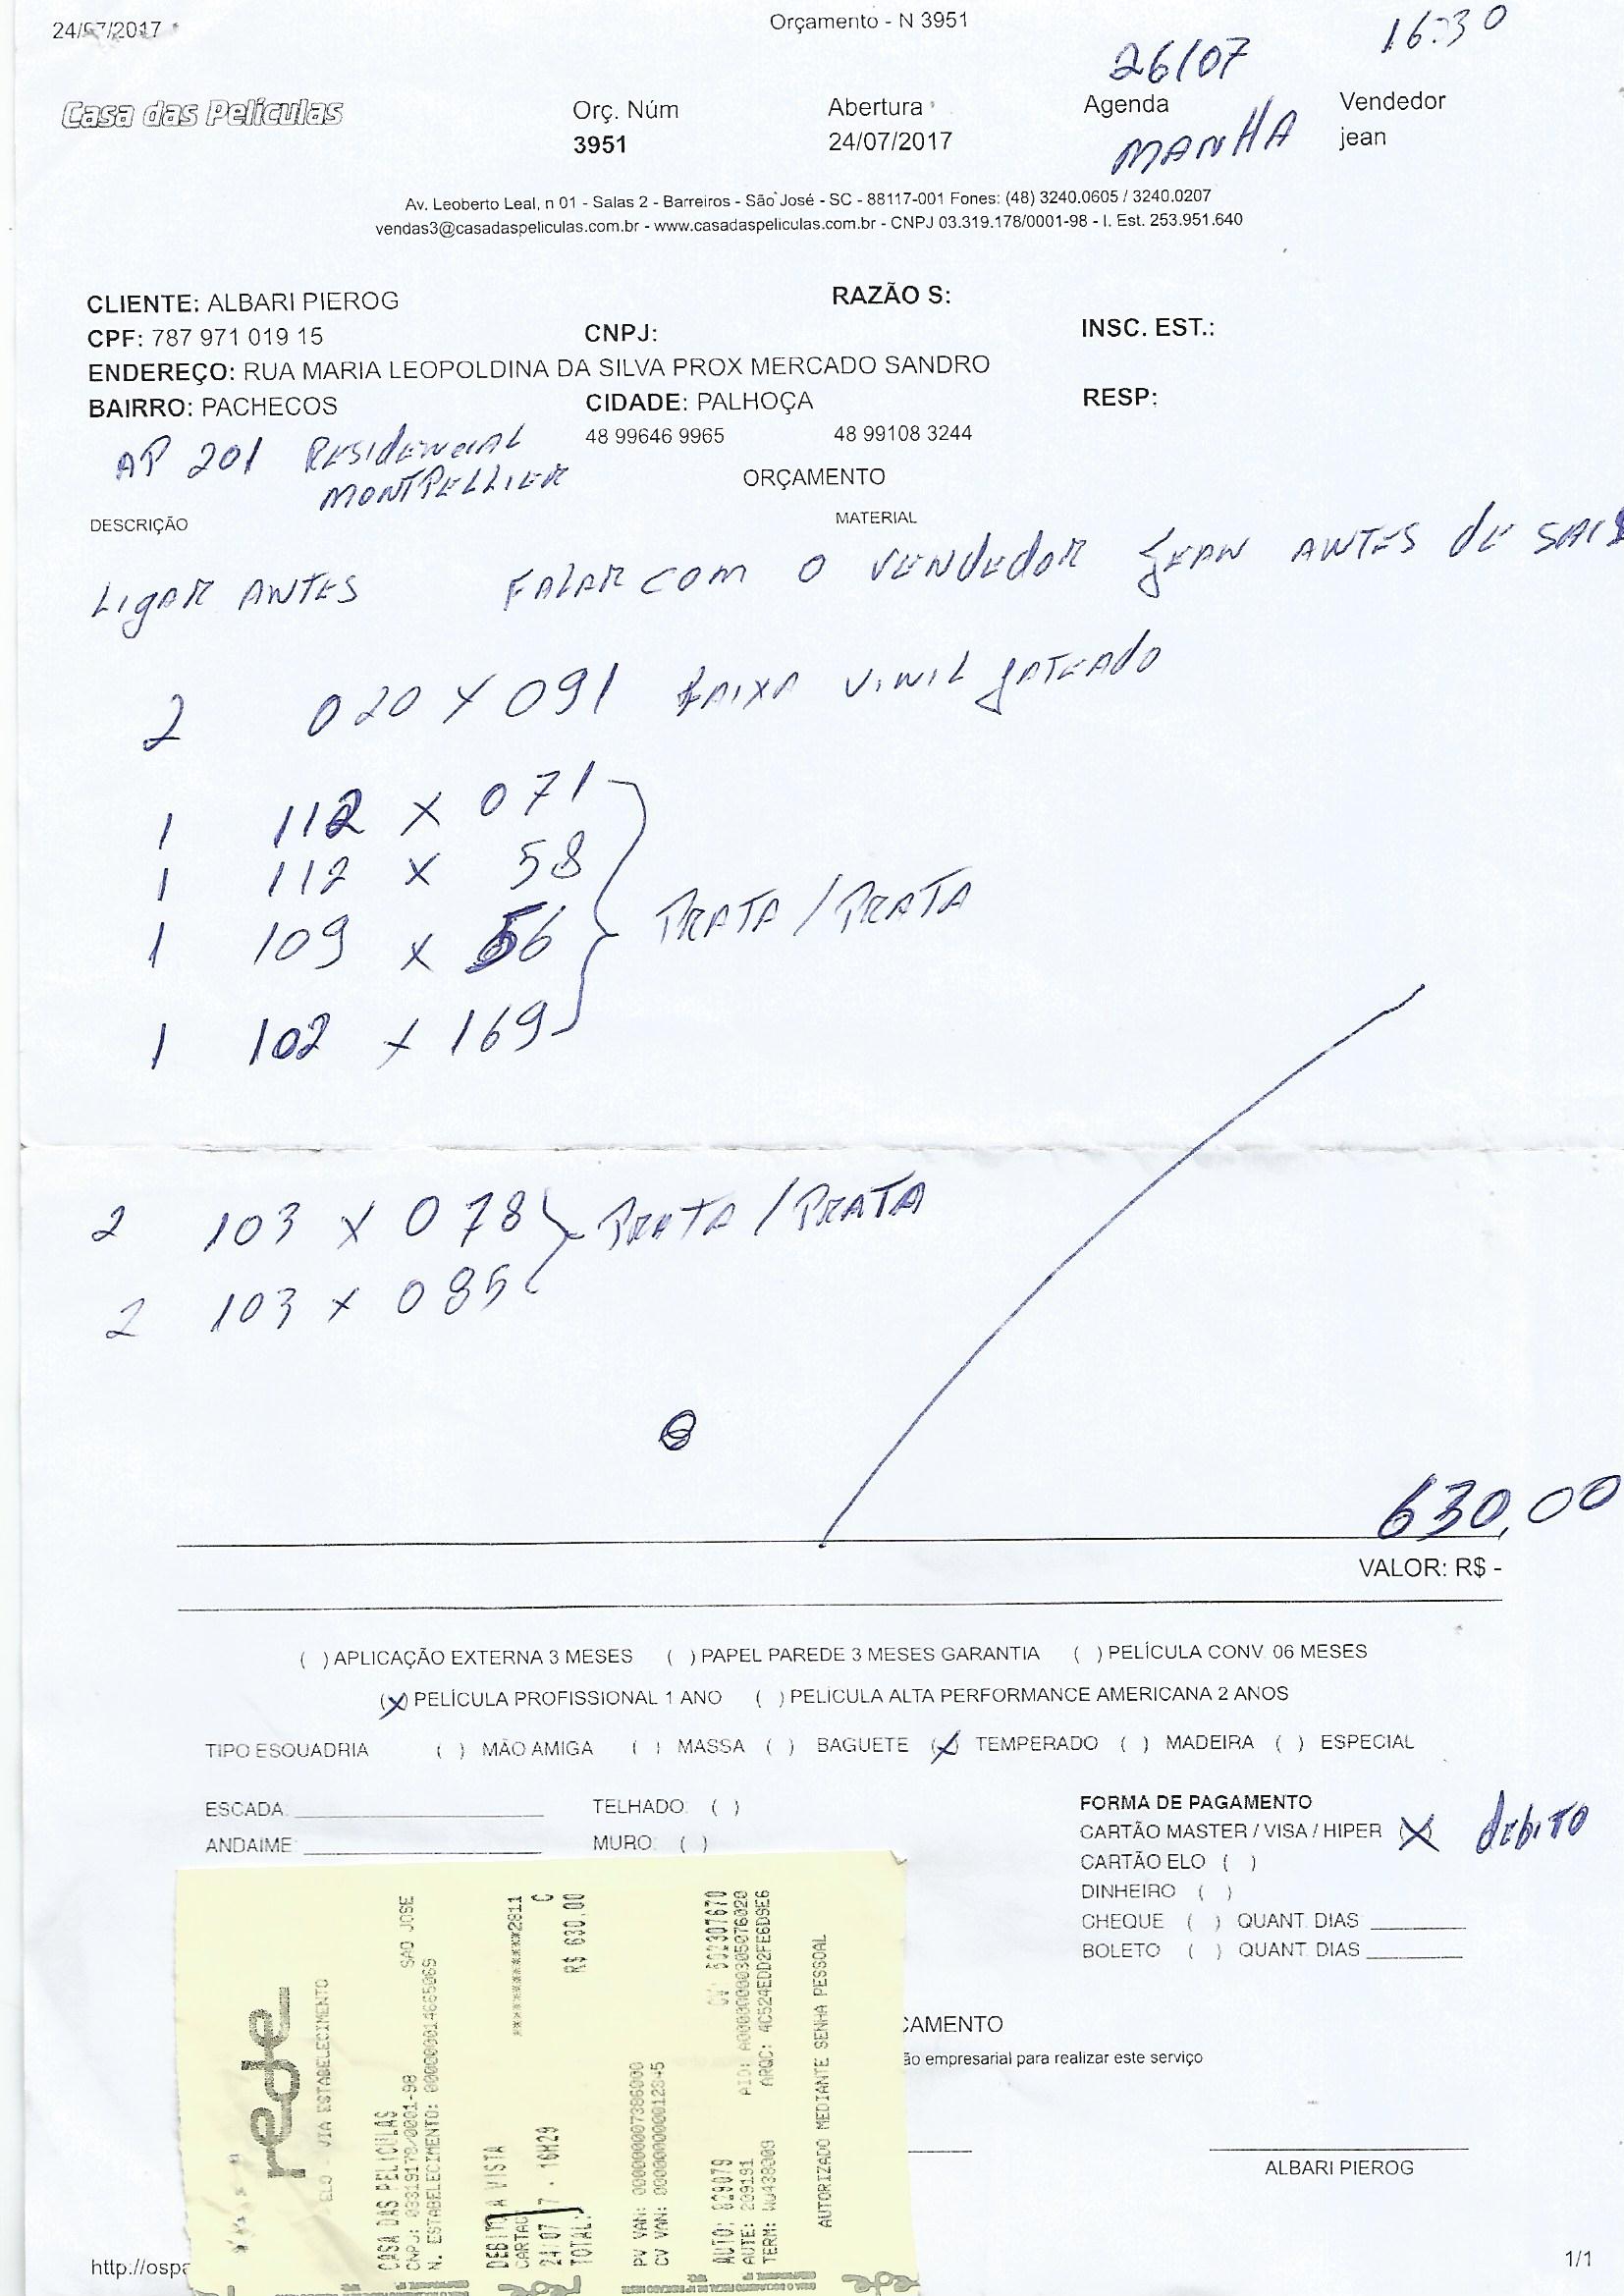 24/07/2017
Orçamento - N 3951
26/07
16:30
Casa das Películas
Orç. Núm
Abertura
Agenda
Vendedor
3951
24/07/2017
MANHA
jean
Av. Leoberto Leal, n 01 - Salas 2 - Barreiros - São José - SC - 88117-001 Fones: (48) 3240.0605 / 3240.0207
vendas3@casadaspeliculas.com.br - www.casadaspeliculas.com.br - CNPJ 03.319.178/0001-98 - I. Est. 253.951.640
CLIENTE: ALBARI PIEROG
RAZÃO S:
CPF: 787 971 019 15
CNPJ:
INSC. EST.:
ENDEREÇO: RUA MARIA LEOPOLDINA DA SILVA PROX MERCADO SANDRO
BAIRRO: PACHECOS
CIDADE: PALHOÇA
RESP:
48 99646 9965
48 99108 3244
AP 201 RESIDENCIAL
MONTPELLIER
ORÇAMENTO
DESCRIÇÃO
MATERIAL
LIGAR ANTES FALAR COM O VENDEDOR JEAN ANTES DE SAIR
2 020 X 091 FAIXA VINIL JATEADO
1 112 X 071
1 112 X 58
1 109 X 56
PRATA / PRATA
1 102 X 169
2 103 X 078
PRATA / PRATA
2 103 X 085
630,00
VALOR: R$ -
( ) APLICAÇÃO EXTERNA 3 MESES ( ) PAPEL PAREDE 3 MESES GARANTIA ( ) PELÍCULA CONV. 06 MESES
(X) PELÍCULA PROFISSIONAL 1 ANO ( ) PELÍCULA ALTA PERFORMANCE AMERICANA 2 ANOS
TIPO ESQUADRIA ( ) MÃO AMIGA ( ) MASSA ( ) BAGUETE (X) TEMPERADO ( ) MADEIRA ( ) ESPECIAL
ESCADA:
TELHADO: ( )
ANDAIME:
MURO: ( )
FORMA DE PAGAMENTO
CARTÃO MASTER / VISA / HIPER (X) debito
CARTÃO ELO ( )
DINHEIRO ( )
CHEQUE ( ) QUANT. DIAS
BOLETO ( ) QUANT. DIAS
CAMENTO
ão empresarial para realizar este serviço
ALBARI PIEROG
rede
ELO - VIA ESTABELECIMENTO
CASA DAS PELICULAS
CNPJ: 03319178/0001-98 SAO JOSE
N. ESTABELECIMENTO: 000000014665069
DEBITO A VISTA
CARTAO ************2811
24/07/17 - 16H29 C
TOTAL: R$ 630.00
PV VAN: 0000000007386000
CV VAN: 0000000000012345
AUTO: 029079 CV: 602307670
AUTE: 209191 AID: A0000000305076020
TERM: ARQC: 4C524EDD2FE6D9E6
AUTORIZADO MEDIANTE SENHA PESSOAL
http://ospa
1/1